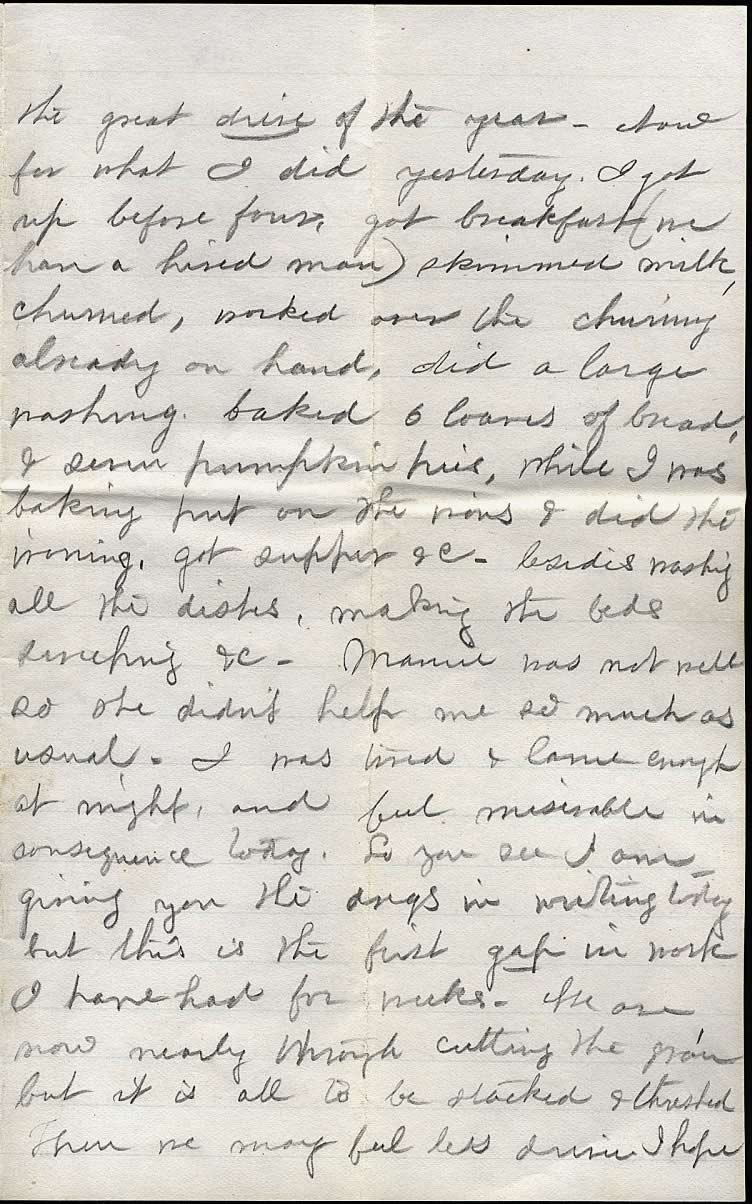 the great drive of the year - Now
for what I did yesterday. I got
up before four, got breakfast (we
have a hired man) skimmed milk,
churned, worked over the churning
already on hand, did a large
washing. baked 6 loaves of bread,
& seven pumpkin pies, while I was
baking put on the irons & did the
ironing, got supper &c - besides washing
all the dishes, making the beds
sweeping &c - Mamie was not well
so she didn't help me so much as
usual - I was tired & lame enough
at night, and feel miserable in
consequence today. So you see I am
giving you the dregs in writing today
but this is the first gap in work
I have had for weeks - We are
now nearly through cutting the grain
but it is all to be stacked & threshed
Then we may feel less driven I hope